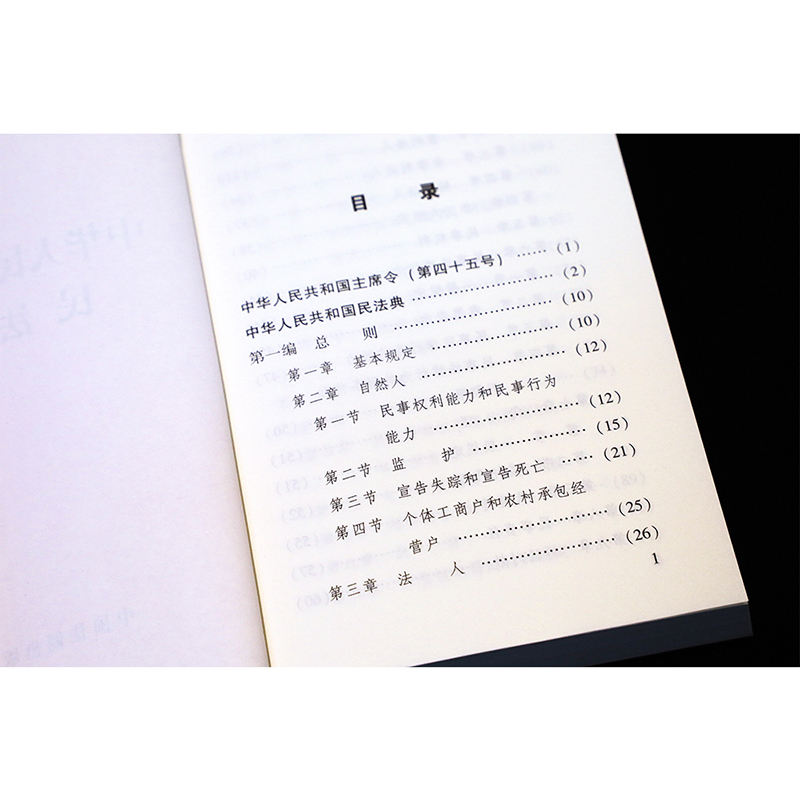 目 录
中华人民共和国主席令（第四十五号） …… (1)
中华人民共和国民法典 ………………… (2)
第一编 总 则 ………………………… (10)
第一章 基本规定 …………………… (10)
第二章 自然人 ……………………… (12)
第一节 民事权利能力和民事行为
能力 ……………………… (12)
第二节 监 护 …………………… (15)
第三节 宣告失踪和宣告死亡 ……… (21)
第四节 个体工商户和农村承包经
营户 ……………………… (25)
第三章 法 人 ……………………… (26)
1